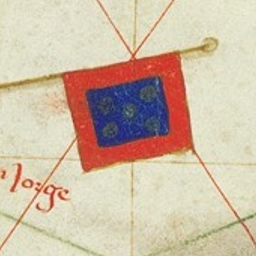 n Jorge